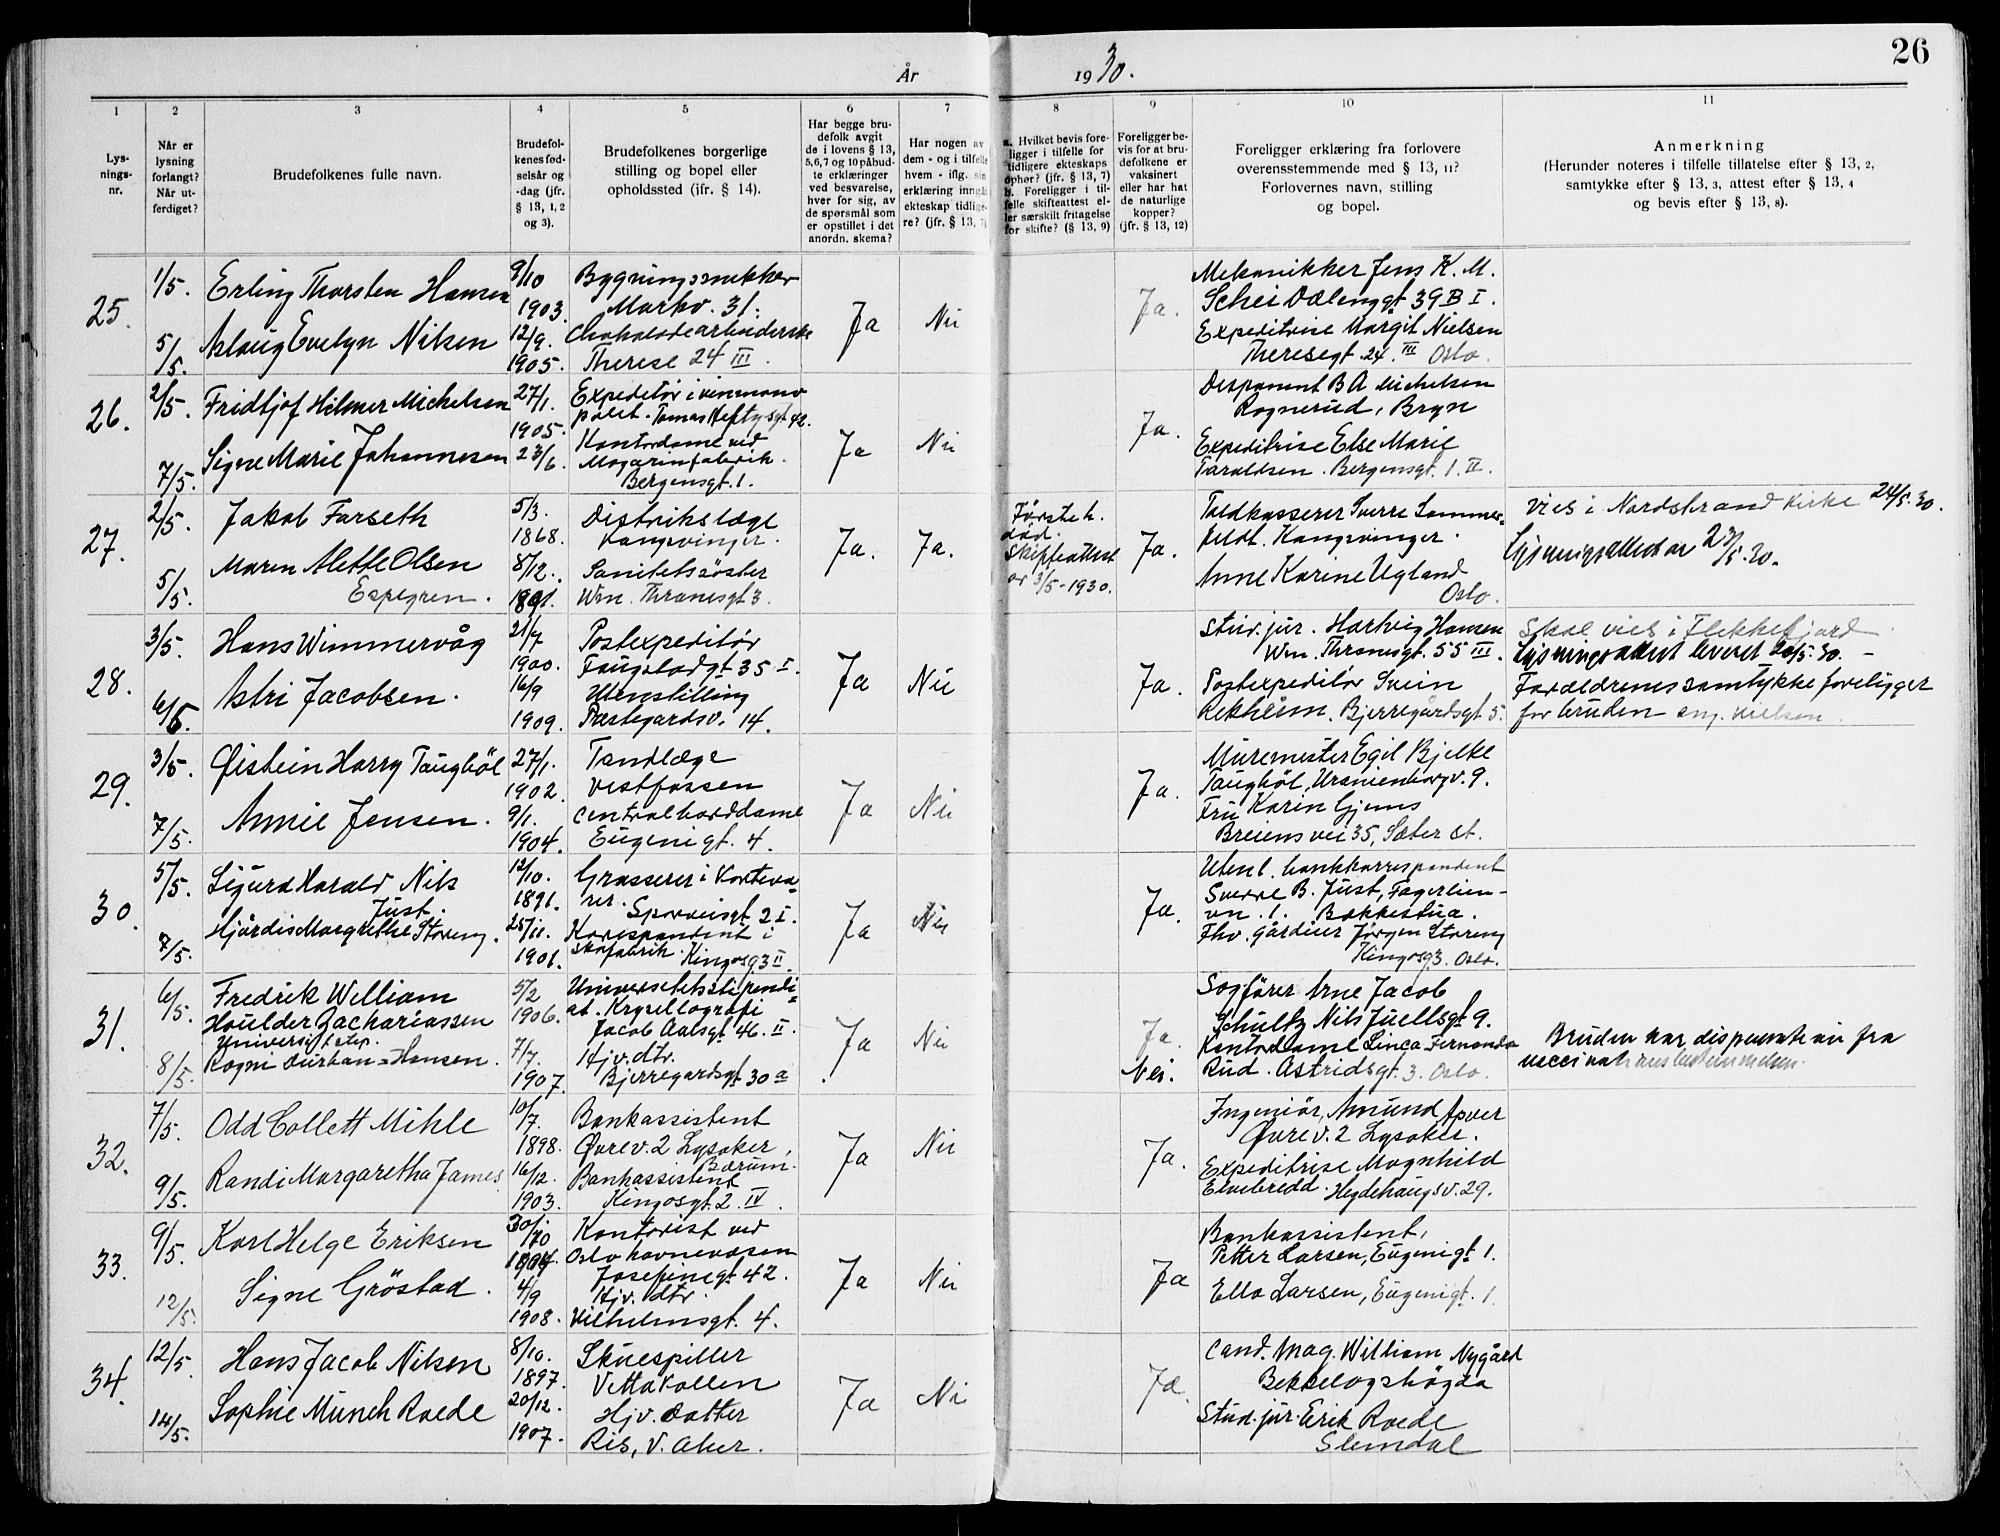 26
År 1930.
1
2
3
4
5
6
7
8
9
10
11
Lys-
nings-
nr.
Når er
lysning
forlangt?
Når ut-
ferdiget?
Brudefolkenes fulle navn.
Brudefol-
kenes fød-
selsår og
-dag (jfr.
§ 13, 1, 2
og 3).
Brudefolkenes borgerlige
stilling og bopel eller
opholdssted (jfr. § 14).
Har begge bru-
defolk avgit
de i lovens § 13,
5,6,7 og 10 påbud-
te erklæringer
ved besvarelse,
hver for sig, av
de spørsmål som
er opstillet i det
anordn. skema?
Har nogen av
dem - og i tilfelle
hvem - iflg. sin
erklæring inngåt
ekteskap tidlige-
re? (jfr. § 13, 7)
a. Hvilket bevis fore-
ligger i tilfelle for
tidligere ekteskaps
ophør? (jfr. § 13, 7)
b. Foreligger i til-
felle skifteattest el-
ler særskilt fritagelse
for skifte? (§ 13, 9)
Foreligger be-
vis for at bru-
defolkene er
vaksinert
eller har hat
de naturlige
kopper?
(jfr. § 13, 12)
Foreligger erklæring fra forlovere
overensstemmende med § 13, 11?
Forlovernes navn, stilling
og bopel.
Anmerkning
(Herunder noteres i tilfelle tillatelse efter § 13, 2,
samtykke efter § 13, 3, attest efter § 13, 4
og bevis efter § 13, 8).
25.
1/5.
5/5.
Erling Thorsten Hansen
Aslaug Evelyn Nilsen
9/10
1903.
12/9.
1905.
Bygningssnekker
Markv. 31.
Chokoladearbeiderske
Therese 24 III.
Ja
Nei
Ja.
Mekanikker Jens K. M.
Schei Dælenggt 39 B I.
Expeditrise Margit Nielsen
Theresegt. 24. III Oslo.
26.
2/5.
7/5.
Fridtjof Hilmer Michelsen
Signe Marie Johannesen
27/1.
1905.
23/6.
Expeditør i vinmono
polet. Tomas Heftysgt 42.
Kontordame ved
Magarinfabrik.
Bergensgt. 1.
Ja
Nei
Ja.
Disponent B A Michelsen
Rognerud, Bryn
Expeditrise Else Marie
Taraldsen. Bergensgt. 1. II.
27.
2/5.
5/5.
Jakob Farseth
Maren Alette Olsen
Espegren.
5/3.
1868.
8/12.
1891.
Distrikslæge
Kongsvinger.
Sanitetssöster
Wm. Thranesgt 3.
Ja.
Ja.
Første h.
död.
Skifteattest
av 3/5-1930.
Ja.
Toldkasserer Sverre Sommer-
feldt. Kongsvinger.
Anne Karine Ugland
Oslo.
vies i Nordstrand Kirke 24/5.30.
Lysningsattest av 23/5.30.
28.
3/5.
6/5.
Hans Wimmervåg
Astri Jacobsen.
21/7
1900.
16/9
1909.
Postexpeditör
Faugstadgt 35 I.
Utenstilling
Prestegardsv. 14.
Ja
Nei
Ja.
Stud. jur. Hartvig Hansen
Wm. Thranesgt. 55 III.
Postexpeditör Svein
Rekheim. Bjerregårdsgt 5.
Skal vies i Flekkefjord
Lysningsattest levert 20/5.30. -
Forældrenes samtykke foreligger
for bruden eng. Nielsen.
29.
3/5.
7/5.
Øistein Harry Taugböl
Annie Jensen.
27/1.
1902.
9/1.
1904.
Tandlæge
Vestfossen
Centralborddame
Eugenigt. 4.
Ja
Nei
Ja.
Muremester Egil Bjelke
Taugböl, Uranienborgv. 9.
Fru Karin Gjems
Breiens vei 35, Sæter st.
30.
5/5.
7/5.
Sigurd Harald Nils
Just.
Hjördis Margrethe Storeng.
12/10.
1891.
25/11.
1901.
Grosserer i Korteva
rer.
Sporveisgt. 2 I.
Korrespondent i
Skofabrik. Kingosg 3 II.
Ja
Nei
Ja.
Utenl. bankkorrespondent
Sverre B. Just, Fagerlien-
vn. 1. Bækkestua.
Fhv. gårdeier Jörgen Storeng
Kingosg 3. Oslo.
31.
6/5.
8/5.
Fredrik William
Houlder Zachariassen
Universit. stip.
Ragni Durban=Hansen.
5/2
1906.
7/7.
1907.
Universitetsstipendi=
at. Krystallografi
Jacob Aalsgt 46. II.
Hjv. dtr.
Bjerregardsgt 30 a
Ja
Nei
Ja.
Nei.
Sagfører Arne Jacob
Schultz Nils Juellsgt 9.
Kontordame Linca Fernanda
Rud. Astridsgt. 3. Oslo.
Bruden har dispensation fra
vaccinationsbestemmelsen.
32.
7/5.
9/5.
Odd Collett Mihle
Randi Margaretha James
10/7.
1898.
16/12.
1903.
Bankassistent
Øvre v. 2 Lysaker,
Bærum.
Bankassistent
Kingosgt. 2. IV.
Ja
Nei
Ja.
Ingeniör, Amund Apver
Øvre v. 2 Lysaker.
Expeditrise Magnhild
Elvebredd. Hegdehaugsv. 29.
33.
9/5.
12/5.
Karl Helge Eriksen
Signe Gröstad.
30/10
4/9
1908.
Kontorist ved
Oslo havnevæsen
Josefinegt 42.
Hjv. dtr.
Vilhelmsgt. 4.
Ja
Nei
Ja
Bankassistent,
Petter Larsen, Eugenigt 1.
Ella Larsen, Eugenigt. 1.
34.
12/5.
14/5.
Hans Jacob Nilsen
Sophie Münch Roede
8/10.
1897.
20/12.
1907.
Skuespiller
Vettakollen
Hjv. datter
Ris, V. Aker.
Ja
Nei
Ja.
Cand. mag. William Nygård
Bekkelagshögda
Stud. jur. Erik Roede
Slemdal